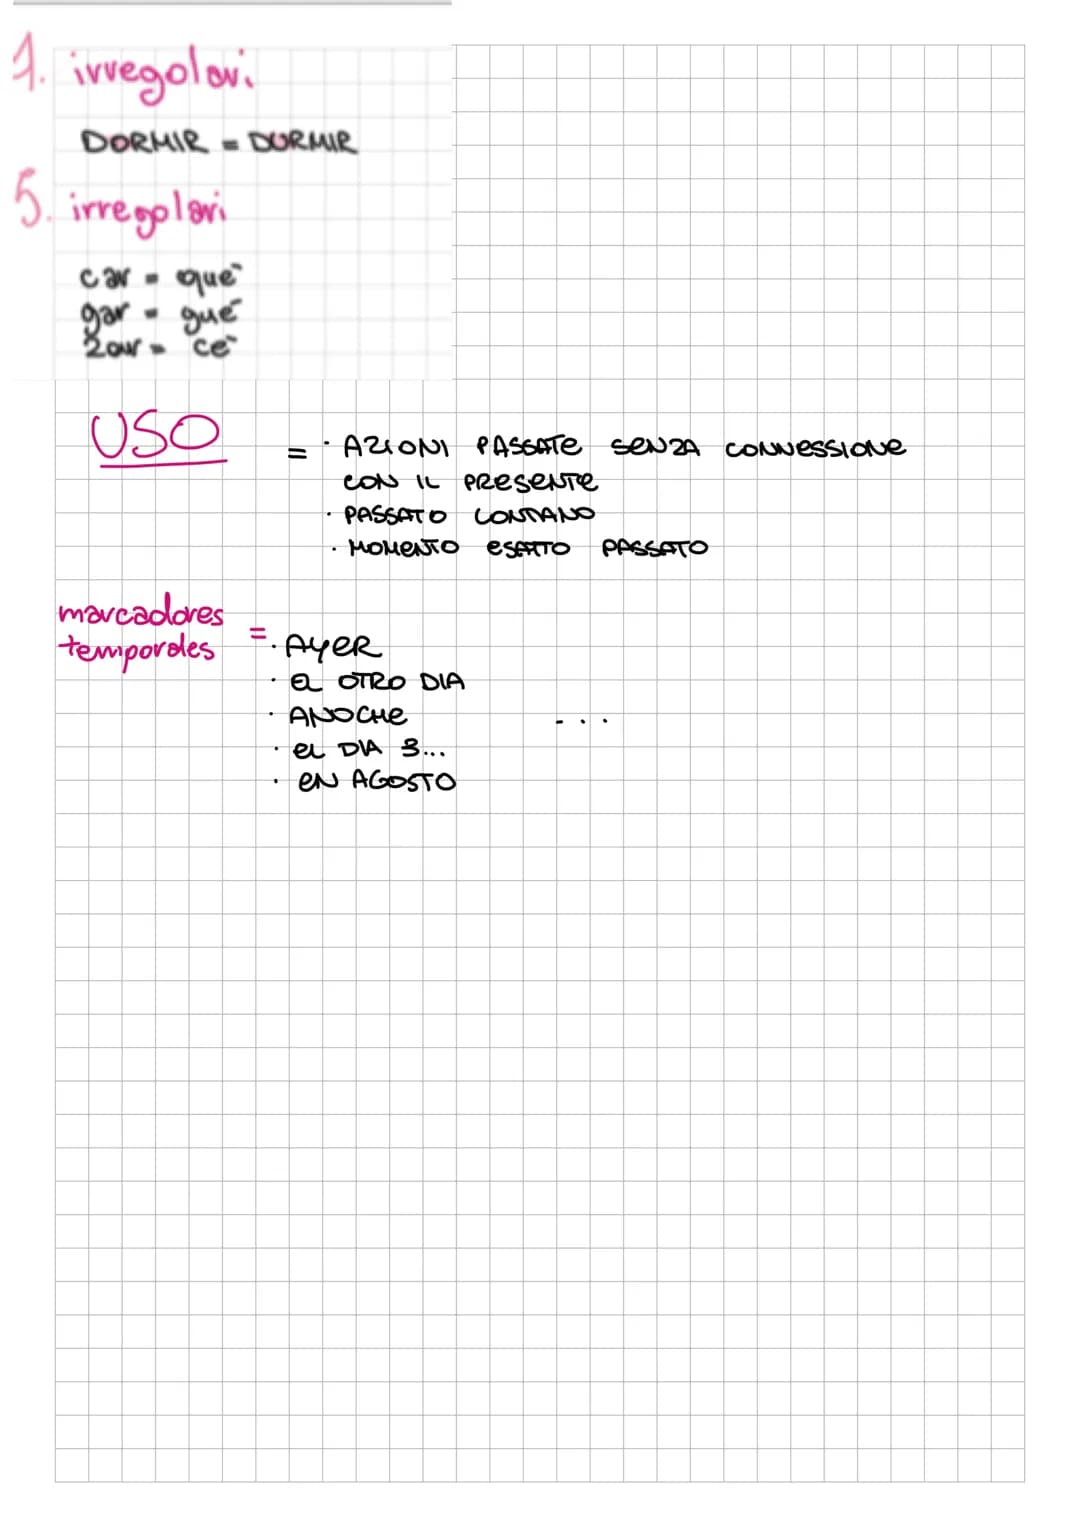 1. irregolari
DORMIR = DURMIR
5. irregolari
car = què
gar = gué
zar = cè
USO
= · AZIONI PASSATE SENZA CONNESSIONE
CON IL PRESENTE
· PASSATO LONTANO
· MOMENTO ESATTO PASSATO
marcadores
temporales = · AYER
· EL OTRO DIA
· ANOCHE ...
· EL DIA 3...
· EN AGOSTO